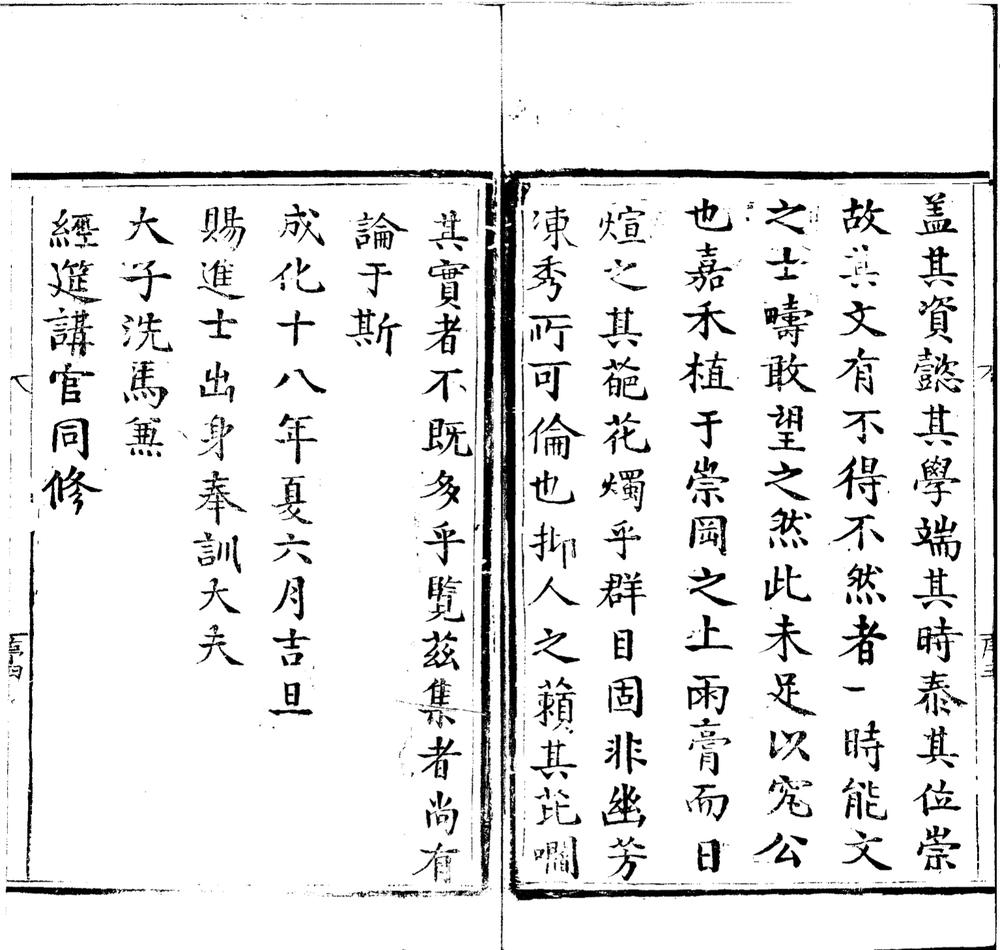 盖其資懿其學端其時泰其位崇
故其文有不得不然者一時能文
之士疇敢望之然此未足以究公
也嘉禾植于崇岡之上雨膏而日
煊之其葩花燭乎群目固非幽芳
凍秀所可倫也抑人之蘱其芘嚪
其實者不既多乎覽茲集者尚有
論于斯
成化十八年夏六月吉旦
賜進士出身奉訓大夫
大子洗馬兼
經筵講官同修
序四